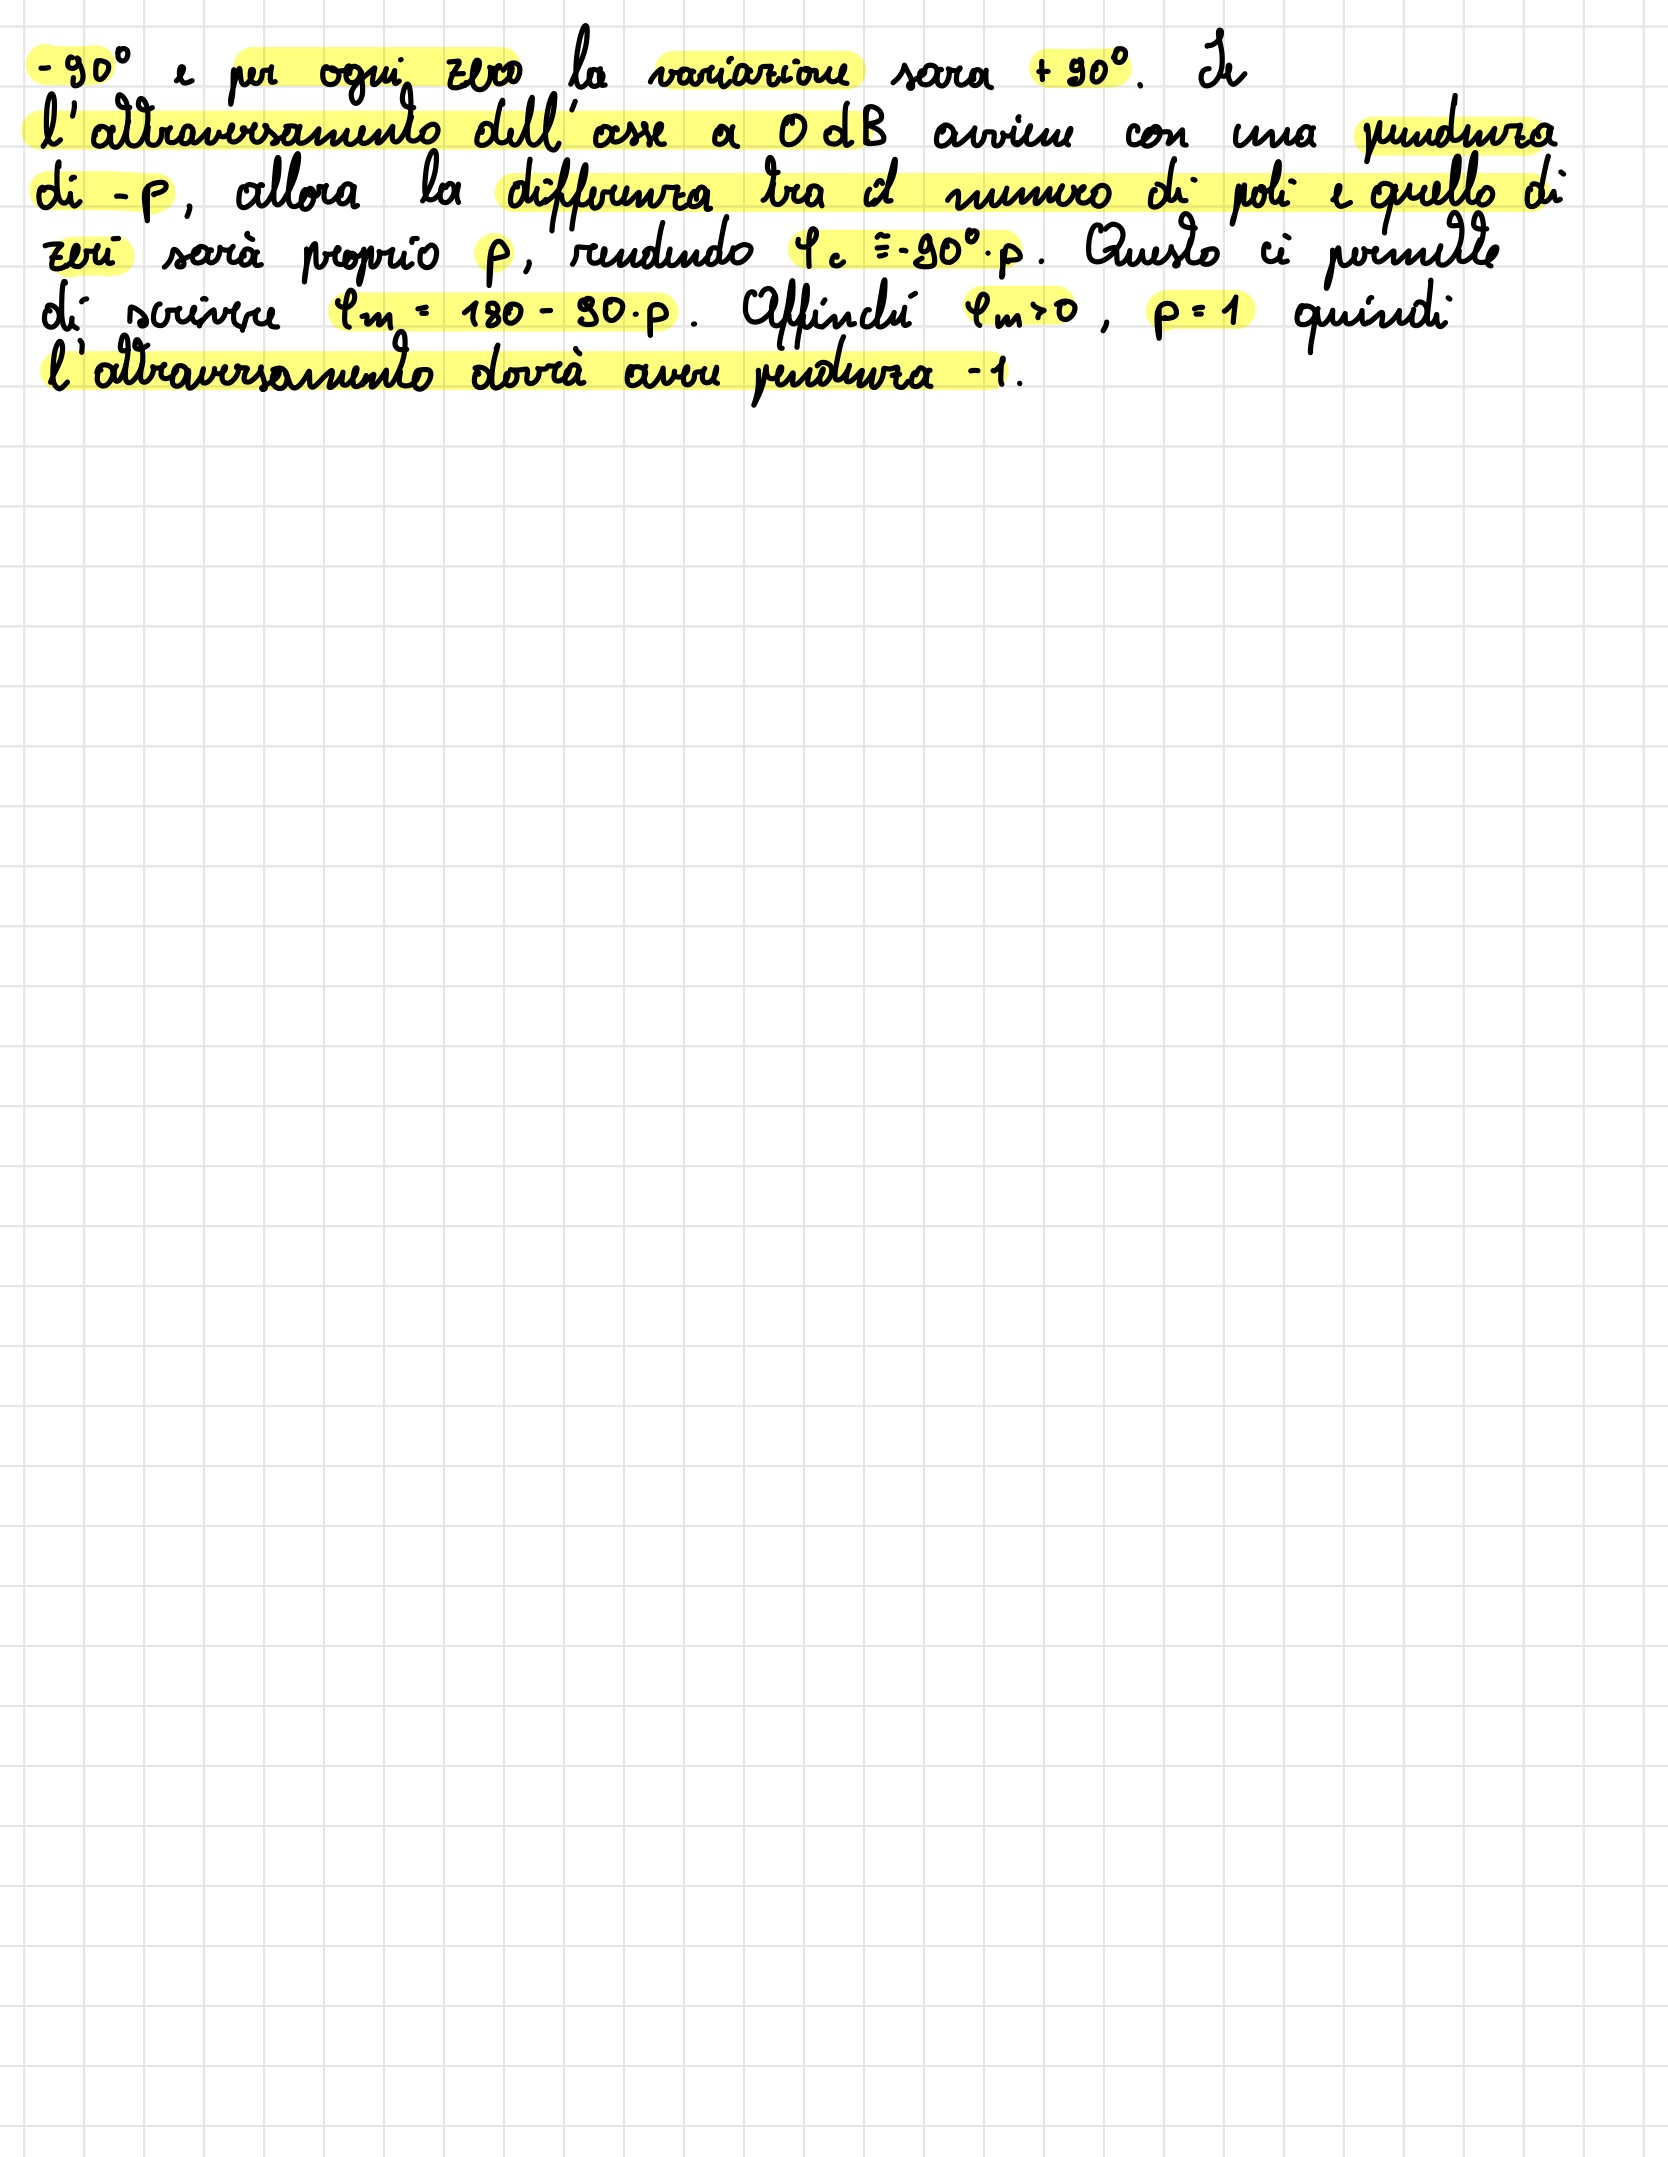 -90° e per ogni zero la variazione sara +90°. Se
l'attraversamento dell'asse a 0 dB avviene con una pendenza
di -p, allora la differenza tra il numero di poli e quello di
zeri sarà proprio p, rendendo φc ≅ -90°·p. Questo ci permette
di scrivere φm = 180 - 90·p. Affinché φm>0, p=1 quindi
l'attraversamento dovrà avere pendenza -1.